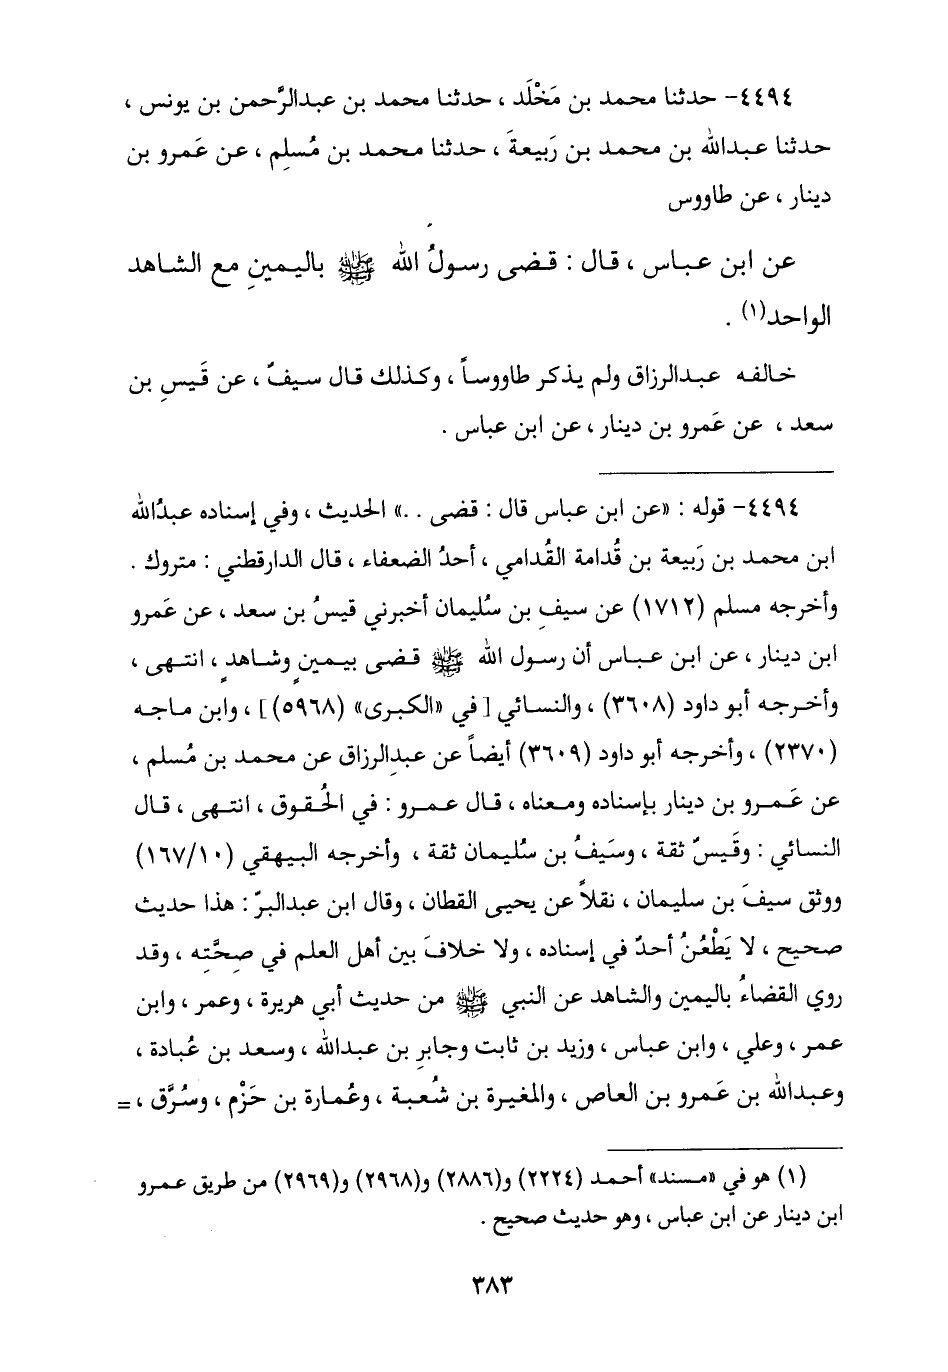 ٤٤٩٤- حدثنا محمد بن مَخْلَد ، حدثنا محمد بن عبدالرَّحمن بن يونس ،
حدثنا عبدالله بن محمد بن رَبيعةَ ، حدثنا محمد بن مُسلِم ، عن عَمرو بن
دينار ، عن طاووس
عن ابن عباس ، قال : قضى رسولُ الله ﷺ باليمينِ مع الشاهد
الواحد(١) .
خالفه عبدالرزاق ولم يذكر طاووساً ، وكذلك قال سيفٌ ، عن قَيسِ بن
سعد ، عن عَمرو بن دينار ، عن ابن عباس .
٤٤٩٤- قوله : «عن ابن عباس قال : قضى ..» الحديث ، وفي إسناده عبدُالله
ابن محمد بن رَبيعة بن قُدامة القُدامي ، أحدُ الضعفاء ، قال الدارقطني : متروك .
وأخرجه مسلم (١٧١٢) عن سيفِ بن سُليمان أخبرني قيسُ بن سعد ، عن عَمرو
ابن دينار ، عن ابن عباس أن رسول الله ﷺ قضى بيمينٍ وشاهدٍ ، انتهى ،
وأخرجه أبو داود (٣٦٠٨) ، والنسائي [في «الكبرى» (٥٩٦٨)] ، وابن ماجه
(٢٣٧٠) ، وأخرجه أبو داود (٣٦٠٩) أيضاً عن عبدِالرزاق عن محمد بن مُسلم ،
عن عَمرو بن دينار بإسناده ومعناه ، قال عمرو : في الحُقوق ، انتهى ، قال
النسائي : وقَيسٌ ثقة ، وسَيفُ بن سُليمان ثقة ، وأخرجه البيهقي (١٦٧/١٠)
ووثق سيفَ بن سليمان ، نقلاً عن يحيى القطان ، وقال ابن عبدالبرّ : هذا حديث
صحيح ، لا يَطْعُنُ أحدٌ في إسناده ، ولا خلافَ بين أهل العلم في صِحَّته ، وقد
روي القضاءُ باليمين والشاهد عن النبي ﷺ من حديث أبي هريرة ، وعمر ، وابن
عمر ، وعلي ، وابن عباس ، وزيد بن ثابت وجابرِ بن عبدالله ، وسعد بن عُبادة ،
وعبدالله بن عَمرو بن العاص ، والمغيرة بن شُعبة ، وعُمارة بن حَزْم ، وسُرَّق ، =
(١) هو في «مسند» أحمد (٢٢٢٤) و(٢٨٨٦) و(٢٩٦٨) و(٢٩٦٩) من طريق عمرو
ابن دينار عن ابن عباس ، وهو حديث صحيح .
٣٨٣